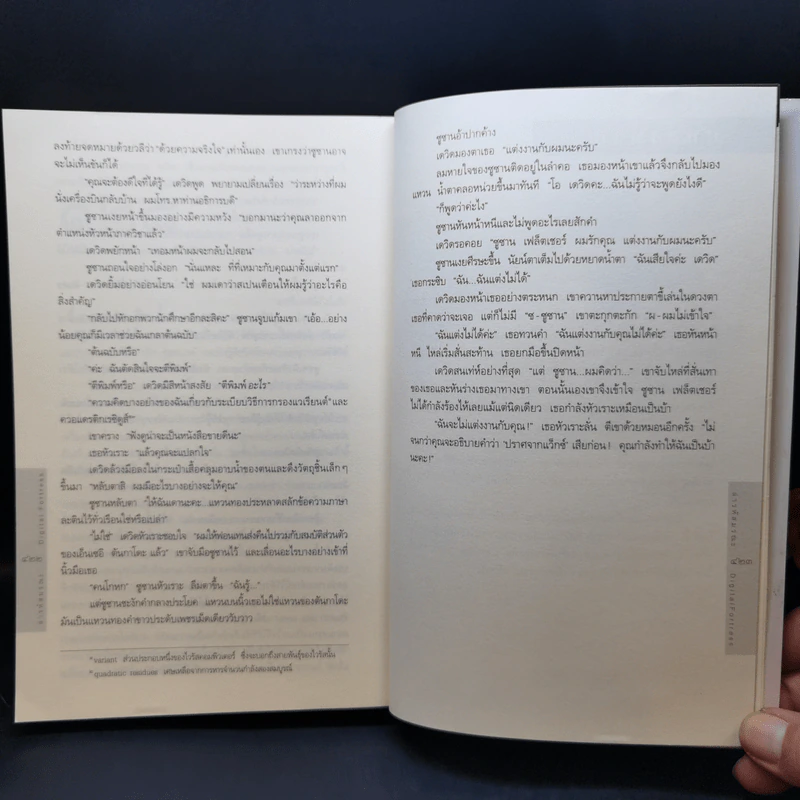 ลงท้ายจดหมายด้วยวลีว่า "ด้วยความจริงใจ" เท่านั้นเอง เขาเกรงว่าซูซานอาจ
จะไม่เห็นขันก็ได้
"คุณจะต้องดีใจที่ได้รู้" เดวิดพูด พยายามเปลี่ยนเรื่อง "ว่าระหว่างที่ผม
นั่งเครื่องบินกลับบ้าน ผมโทร.หาท่านอธิการบดี"
ซูซานเงยหน้าขึ้นมองอย่างมีความหวัง "บอกมานะว่าคุณลาออกจาก
ตำแหน่งหัวหน้าภาควิชาแล้ว"
เดวิดพยักหน้า "เทอมหน้าผมจะกลับไปสอน"
ซูซานถอนใจอย่างโล่งอก "นั่นแหละ ที่ที่เหมาะกับคุณมาตั้งแต่แรก"
เดวิดยิ้มอย่างอ่อนโยน "ใช่ ผมเดาว่าสเปนเตือนให้ผมรู้ว่าอะไรคือ
สิ่งสำคัญ"
"กลับไปหักอกพวกนักศึกษาอีกละสิคะ" ซูซานจูบแก้มเขา "เอ้อ...อย่าง
น้อยคุณก็มีเวลาช่วยฉันเกลาต้นฉบับ"
"ต้นฉบับหรือ"
"ค่ะ ฉันตัดสินใจจะตีพิมพ์"
"ตีพิมพ์หรือ" เดวิดมีสีหน้าสงสัย "ตีพิมพ์อะไร"
"ความคิดบางอย่างของฉันเกี่ยวกับระเบียบวิธีการกรองแวเรียนต์* และ
ควอแดรติกเรซิดูส์**"
เขาคราง "ฟังดูน่าจะเป็นหนังสือขายดีนะ"
เธอหัวเราะ "แล้วคุณจะแปลกใจ"
เดวิดล้วงมือลงในกระเป๋าเสื้อคลุมอาบน้ำของตนและดึงวัตถุชิ้นเล็ก ๆ
ขึ้นมา "หลับตาสิ ผมมีอะไรบางอย่างจะให้คุณ"
ซูซานหลับตา "ให้ฉันเดานะคะ...แหวนทองประหลาดสลักข้อความภาษา
ละตินไว้ทั่วเรียบใช่หรือเปล่า"
"ไม่ใช่" เดวิดหัวเราะชอบใจ "ผมให้ฟอนเทนส่งคืนไปรวมกับสมบัติส่วนตัว
ของเอ็นเซอิ ตันกาโดะ แล้ว" เขาจับมือซูซานไว้ และเลื่อนอะไรบางอย่างเข้าที่
นิ้วมือเธอ
"คนโกหก" ซูซานหัวเราะ ลืมตาขึ้น "ฉันรู้..."
แต่ซูซานชะงักคำกลางประโยค แหวนบนนิ้วเธอไม่ใช่แหวนของตันกาโดะ
มันเป็นแหวนทองคำขาวประดับเพชรเม็ดเดียววับวาว
* variant ส่วนประกอบหนึ่งของไวรัสคอมพิวเตอร์ ซึ่งจะบอกถึงสายพันธุ์ของไวรัสนั้น
** quadratic residues เศษเหลือจากการหารจำนวนกำลังสองสมบูรณ์
๔๒๒ Digital Fortress
ซูซานอ้าปากค้าง
เดวิดมองตาเธอ "แต่งงานกับผมนะครับ"
ลมหายใจของซูซานติดอยู่ในลำคอ เธอมองหน้าเขาแล้วจึงกลับไปมอง
แหวน น้ำตาคลอหน่วยขึ้นมาทันที "โอ เดวิดคะ...ฉันไม่รู้ว่าจะพูดยังไงดี"
"ก็พูดว่าค่ะไง"
ซูซานหันหน้าหนีและไม่พูดอะไรเลยสักคำ
เดวิดรอคอย "ซูซาน เฟล็ตเชอร์ ผมรักคุณ แต่งงานกับผมนะครับ"
ซูซานเงยศีรษะขึ้น นัยน์ตาเต็มไปด้วยหยาดน้ำตา "ฉันเสียใจค่ะ เดวิด"
เธอกระซิบ "ฉัน...ฉันแต่งไม่ได้"
เดวิดมองหน้าเธออย่างตระหนก เขาควานหาประกายตาขี้เล่นในดวงตา
เธอที่คาดว่าจะเจอ แต่ก็ไม่มี "ซ-ซูซาน" เขาตะกุกตะกัก "ผ-ผมไม่เข้าใจ"
"ฉันแต่งไม่ได้ค่ะ" เธอทวนคำ "ฉันแต่งงานกับคุณไม่ได้ค่ะ" เธอหันหน้า
หนี ไหล่เริ่มสั่นสะท้าน เธอยกมือขึ้นปิดหน้า
เดวิดสนเท่ห์อย่างที่สุด "แต่ ซูซาน...ผมคิดว่า..." เขาจับไหล่ที่สั่นเทา
ของเธอและหันร่างเธอมาทางเขา ตอนนั้นเองเขาจึงเข้าใจ ซูซาน เฟล็ตเชอร์
ไม่ได้กำลังร้องไห้เลยแม้แต่นิดเดียว เธอกำลังหัวเราะเหมือนเป็นบ้า
"ฉันจะไม่แต่งงานกับคุณ!" เธอหัวเราะลั่น ตีเขาด้วยหมอนอีกครั้ง "ไม่
จนกว่าคุณจะอธิบายคำว่า 'ปราศจากแว็กซ์' เสียก่อน! คุณกำลังทำให้ฉันเป็นบ้า
นะคะ!"
๔๒๓ Digital Fortress